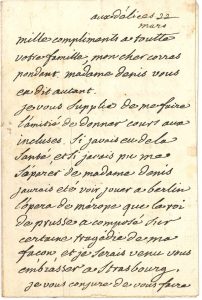 aux delices 22
mars
mille compliments a toutte
votre famille, mon cher corres
pondent. madame denis vous
en dit autant.
je vous suplie de me faire
l'amitié de donner cours aux
incluses. Si javais eu de la
santé, et si javais pu me
séparer de madame denis
jaurais eté voir jouer a berlin
l'opera de mérope que le roi
de prusse a composé sur
certaine tragédie de ma
façon, et je serais venu vous
embrasser a Strasbourg.
je vous conjure de vous faire